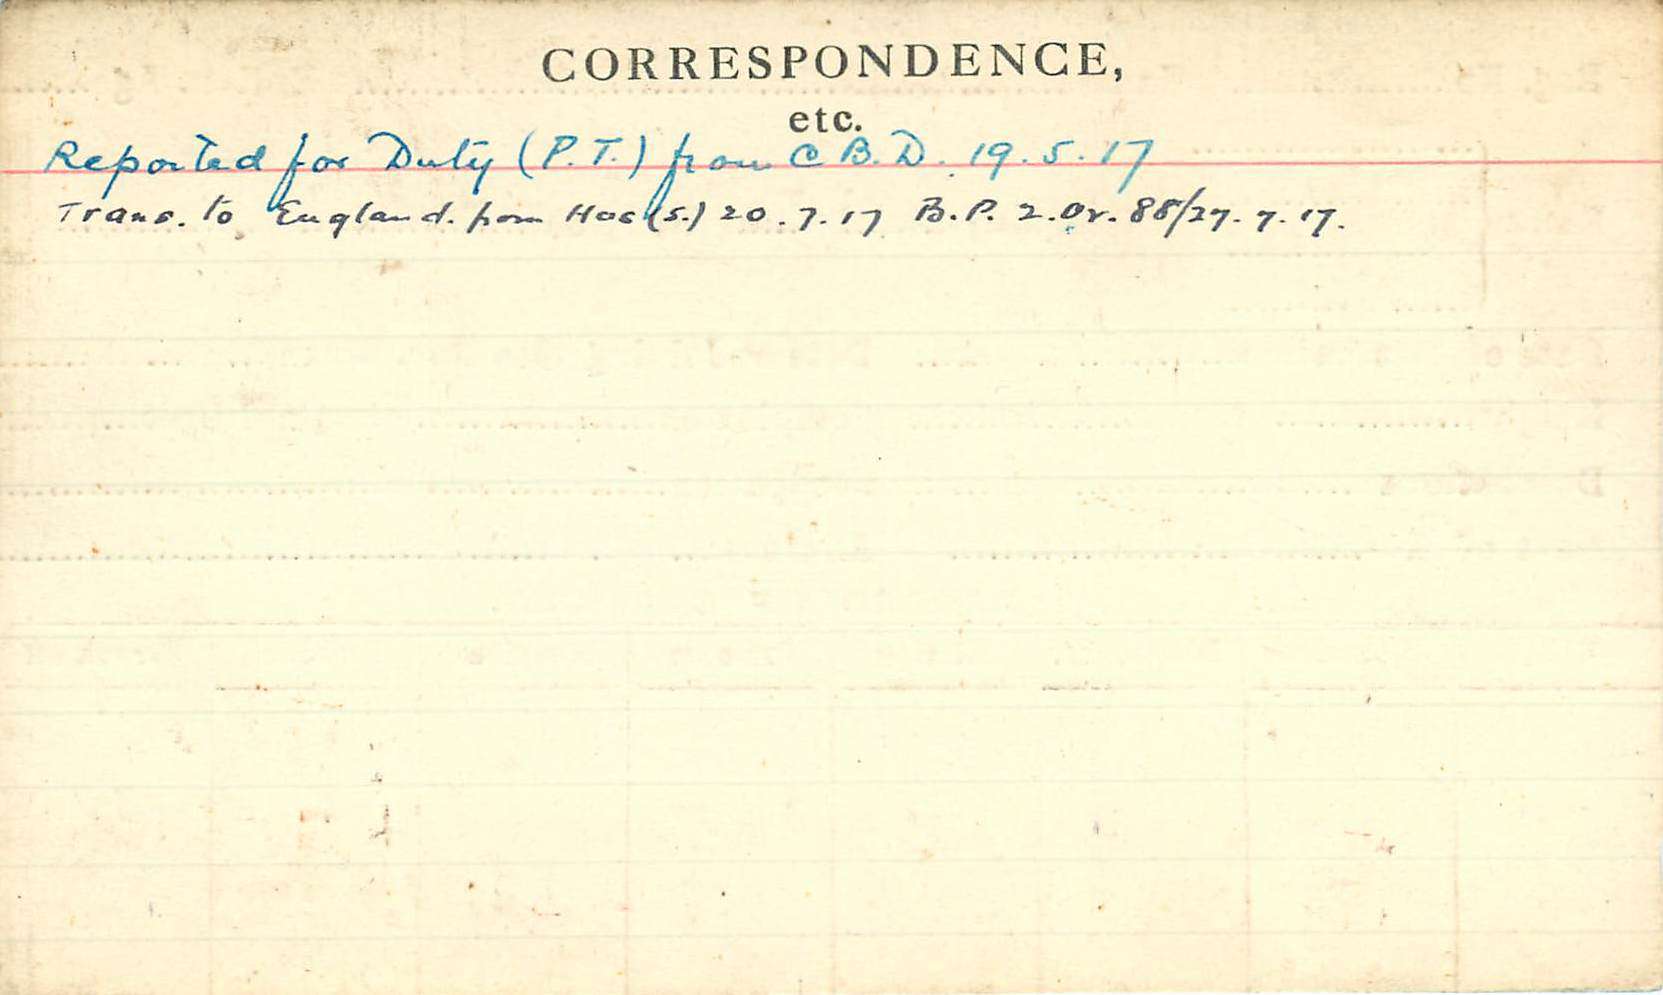 CORRESPONDENCE,
etc.
Reported for Duty (P.T.) from C B.D. 19.5.17
Trans. to England. from Hos (S.) 20.7.17 B.P. 2.Or. 88/27.7.17.